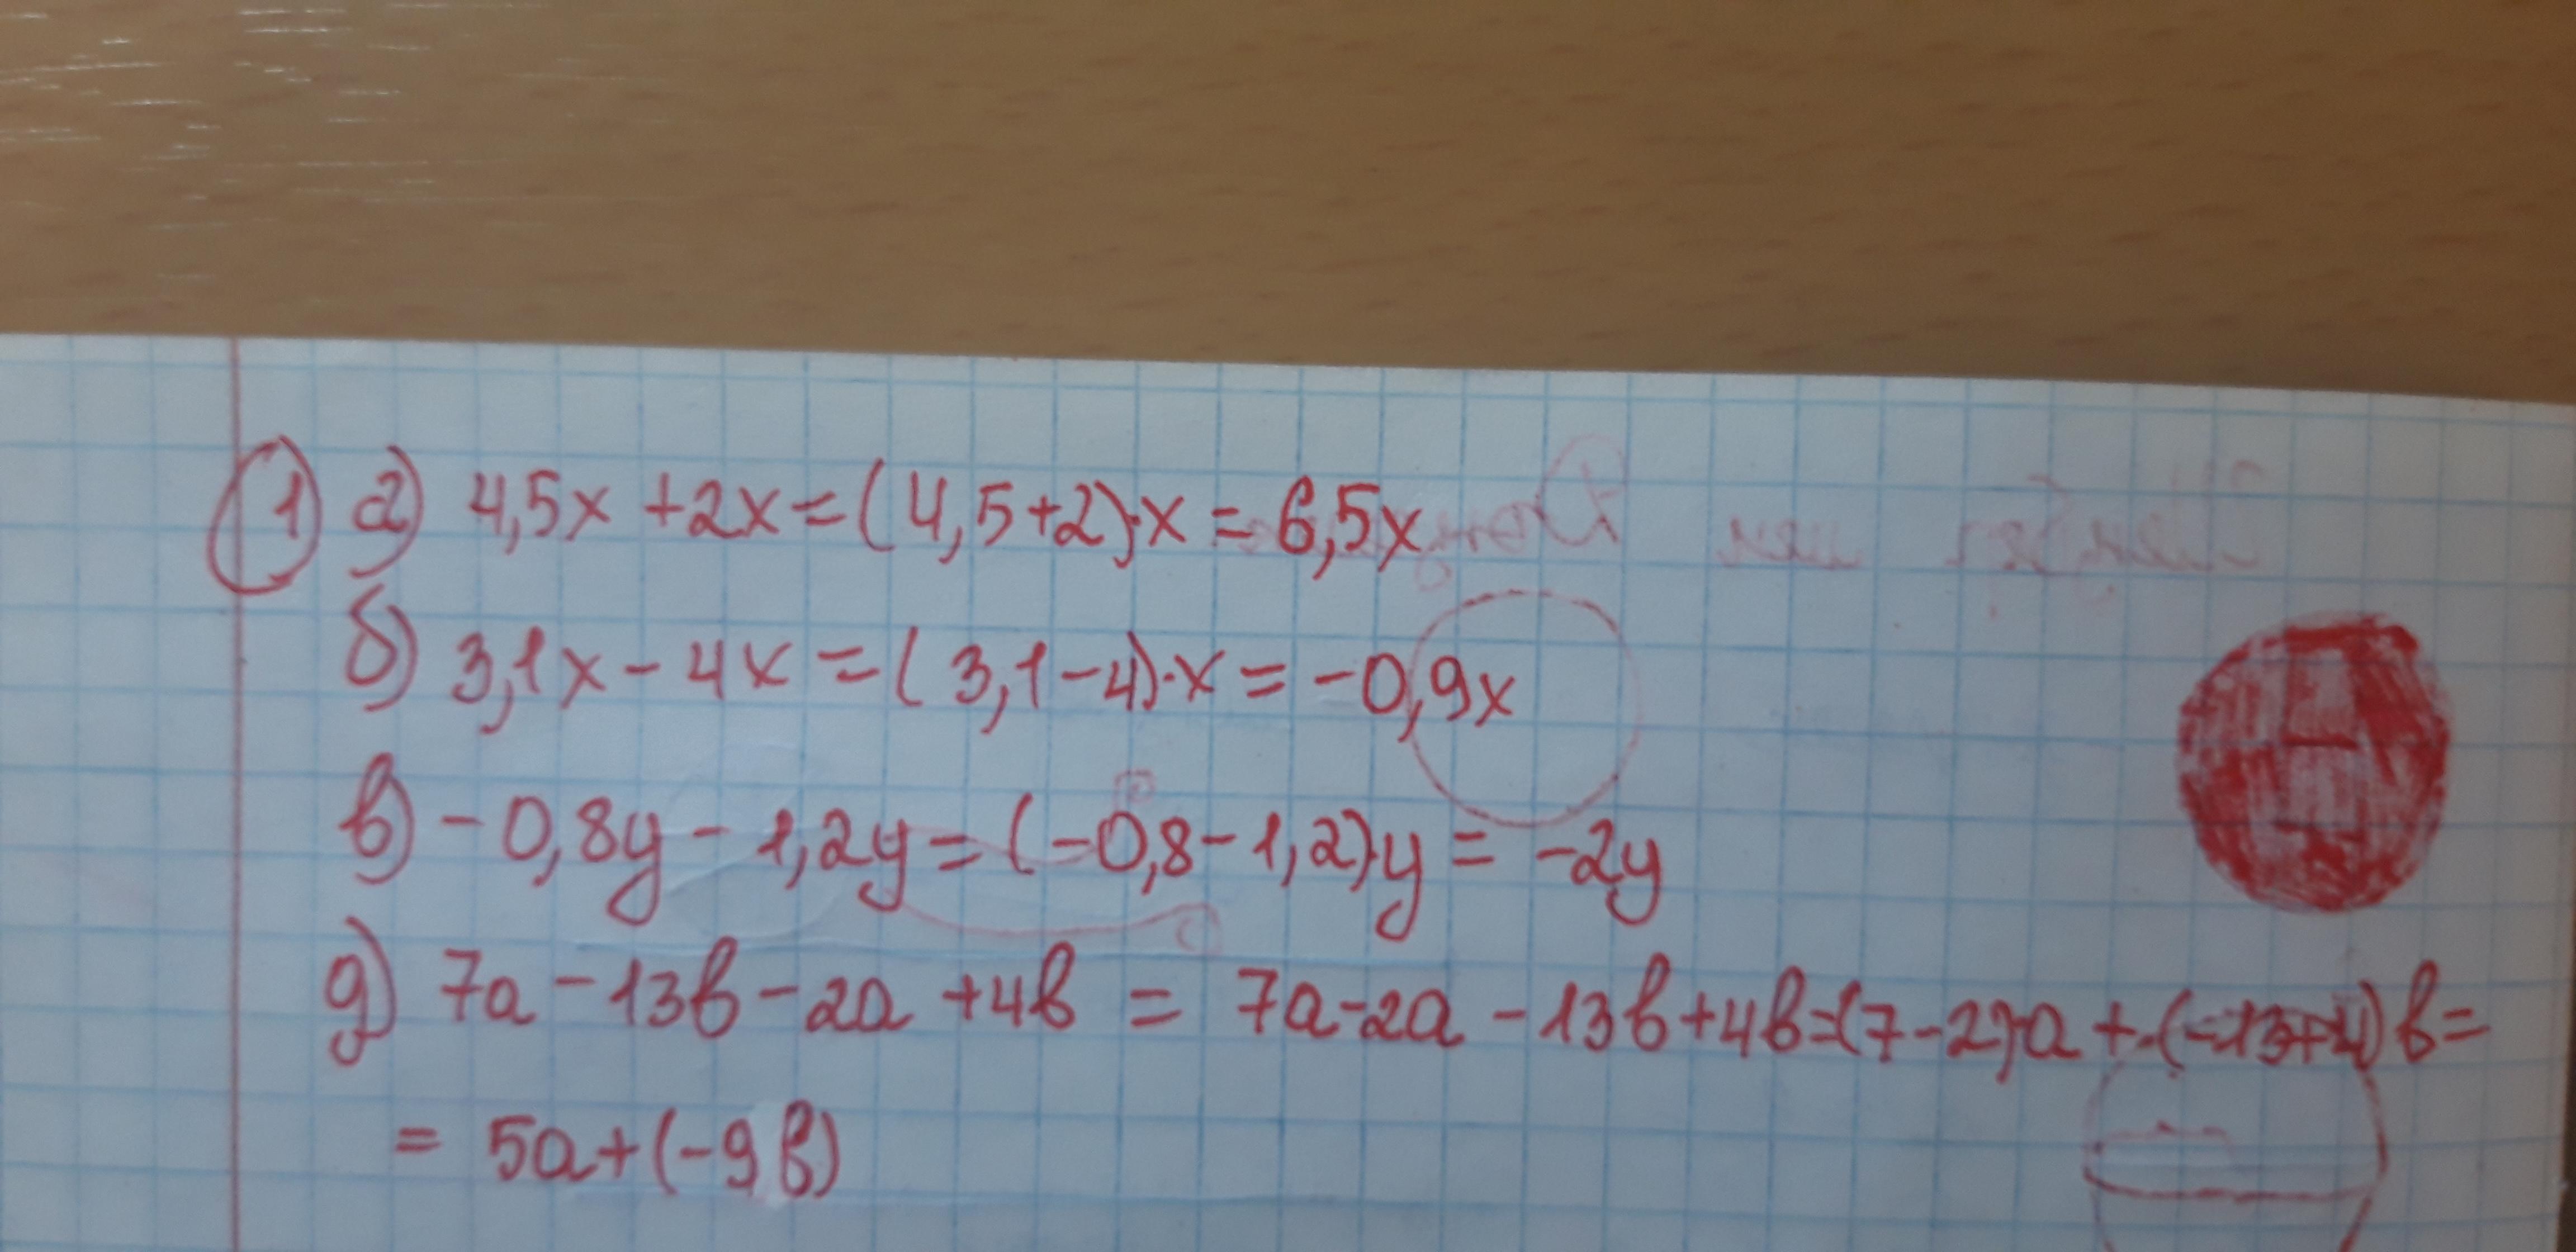 1) а) 4,5x + 2x = (4,5+2)·x = 6,5x
б) 3,1x - 4x = (3,1-4)·x = -0,9x
в) -0,8y - 1,2y = (-0,8-1,2)·y = -2y
д) 7а - 13в - 2а + 4в = 7а - 2а - 13в + 4в = (7-2)·а + (-13+4)в =
= 5а + (-9в)